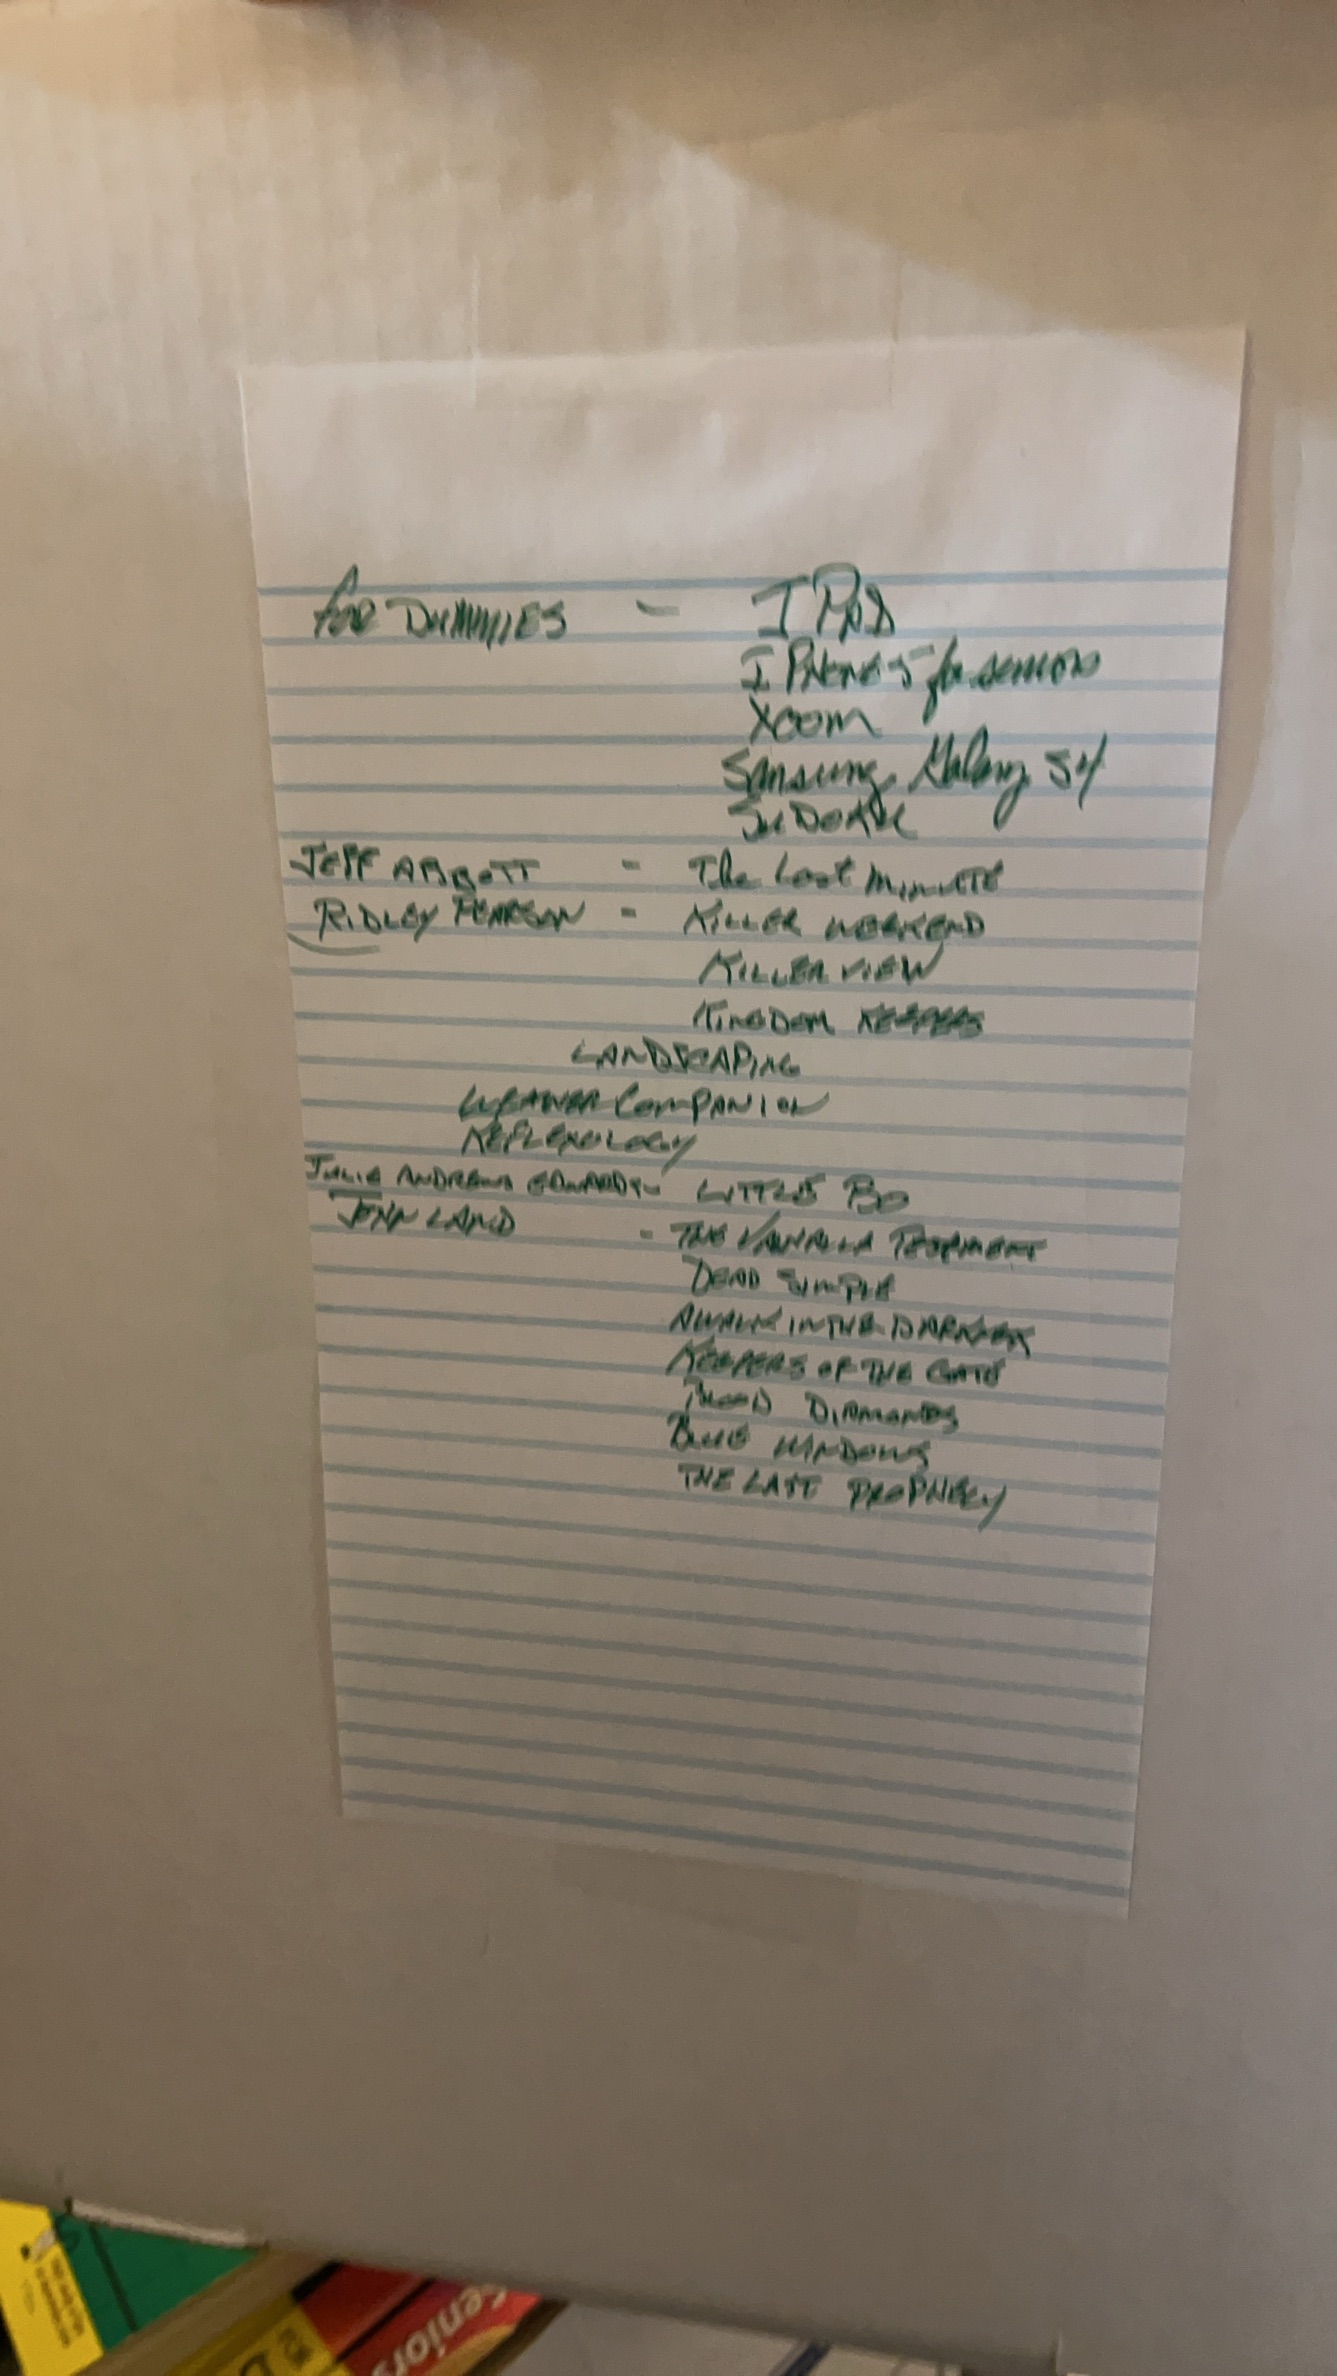 for DUMMIES - I PAD
I PHONE 5 for seniors
XOOM
Samsung Galaxy S4
SUDOKU
JEFF ABBOTT - The Last MINUTE
RIDLEY PEARSON - KILLER WEEKEND
KILLER VIEW
KINGDOM KEEPERS
LANDSCAPING
WEAVER COMPANION
REFLEXOLOGY
JULIE ANDREWS EDWARDS - LITTLE BO
LAND - THE
DEAD SIMPLE
A WALK IN THE DARKNESS
KEEPERS OF THE GATE
BLOOD DIAMONDS
BLUE WINDOWS
THE LAST PROPHECY
Seniors